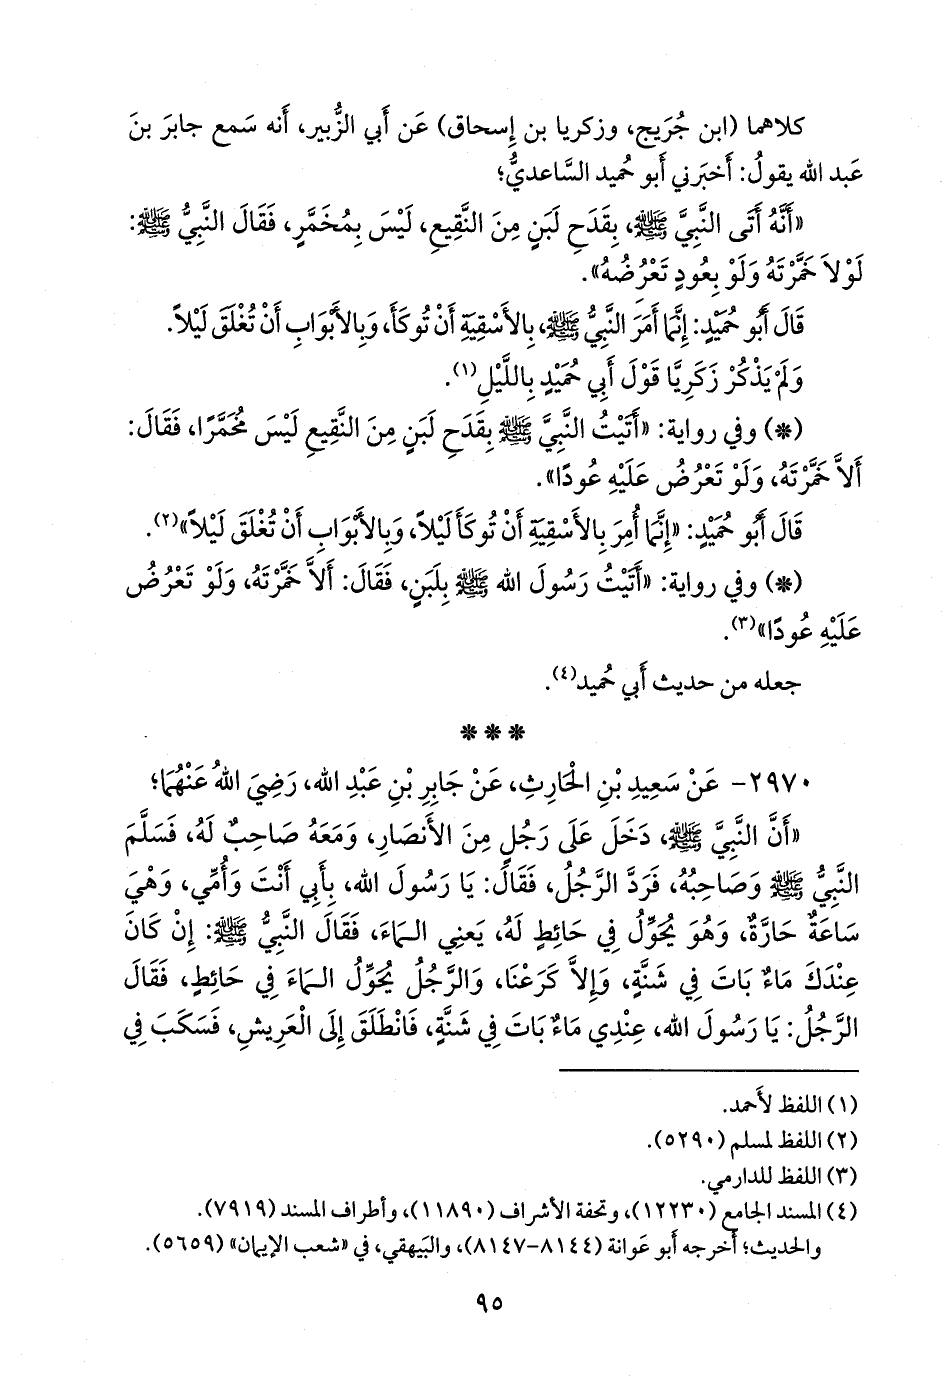 كلاهما (ابن جُرَيج، وزكريا بن إسحاق) عَن أَبي الزُّبير، أَنه سَمع جابرَ بنَ
عَبد الله يقولُ: أَخبَرني أَبو حُميد السَّاعديُّ؛
«أَنَّهُ أَتَى النَّبِيَّ ﷺ، بِقَدَحِ لَبَنٍ مِنَ النَّقِيعِ، لَيْسَ بِمُخَمَّرٍ، فَقَالَ النَّبِيُّ ﷺ:
لَوْلاَ خَمَّرْتَهُ وَلَوْ بِعُودٍ تَعْرُضُهُ».
قَالَ أَبُو حُمَيْدٍ: إِنَّمَا أَمَرَ النَّبِيُّ ﷺ، بِالأَسْقِيَةِ أَنْ تُوكَأَ، وَبِالأَبْوَابِ أَنْ تُغْلَقَ لَيْلاً.
وَلَمْ يَذْكُرْ زَكَرِيَّا قَوْلَ أَبِي حُمَيْدٍ بِاللَّيْلِ(١).
(*) وفي رواية: «أَتَيْتُ النَّبِيَّ ﷺ بِقَدَحِ لَبَنٍ مِنَ النَّقِيعِ لَيْسَ مُخَمَّرًا، فَقَالَ:
أَلاَّ خَمَّرْتَهُ، وَلَوْ تَعْرُضُ عَلَيْهِ عُودًا».
قَالَ أَبُو حُمَيْدٍ: «إِنَّمَا أُمِرَ بِالأَسْقِيَةِ أَنْ تُوكَأَ لَيْلاً، وَبِالأَبْوَابِ أَنْ تُغْلَقَ لَيْلاً»(٢).
(*) وفي رواية: «أَتَيْتُ رَسُولَ الله ﷺ بِلَبَنٍ، فَقَالَ: أَلاَّ خَمَّرْتَهُ، وَلَوْ تَعْرُضُ
عَلَيْهِ عُودًا»(٣).
جعله من حديث أَبي حُميد(٤).
* * *
٢٩٧٠- عَنْ سَعِيدِ بْنِ الحَارِثِ، عَنْ جَابِرِ بْنِ عَبْدِ الله، رَضِيَ اللهُ عَنْهُمَا؛
«أَنَّ النَّبِيَّ ﷺ، دَخَلَ عَلَى رَجُلٍ مِنَ الأَنْصَارِ، وَمَعَهُ صَاحِبٌ لَهُ، فَسَلَّمَ
النَّبِيُّ ﷺ وَصَاحِبُهُ، فَرَدَّ الرَّجُلُ، فَقَالَ: يَا رَسُولَ الله، بِأَبِي أَنْتَ وَأُمِّي، وَهْيَ
سَاعَةٌ حَارَّةٌ، وَهُوَ يُحَوِّلُ فِي حَائِطٍ لَهُ، يَعنِي المَاءَ، فَقَالَ النَّبِيُّ ﷺ: إِنْ كَانَ
عِنْدَكَ مَاءٌ بَاتَ فِي شَنَّةٍ، وَإِلاَّ كَرَعْنَا، وَالرَّجُلُ يُحَوِّلُ المَاءَ فِي حَائِطٍ، فَقَالَ
الرَّجُلُ: يَا رَسُولَ الله، عِنْدِي مَاءٌ بَاتَ فِي شَنَّةٍ، فَانْطَلَقَ إِلَى الْعَرِيشِ، فَسَكَبَ فِي
(١) اللفظ لأَحمد.
(٢) اللفظ لمسلم (٥٢٩٠).
(٣) اللفظ للدارمي.
(٤) المسند الجامع (١٢٢٣٠)، وتحفة الأشراف (١١٨٩٠)، وأطراف المسند (٧٩١٩).
والحديث؛ أخرجه أبو عَوانة (٨١٤٤-٨١٤٧)، والبَيهقي، في «شعب الإيمان» (٥٦٥٩).
٩٥